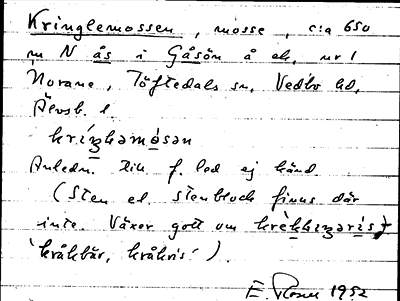 Kringlemossen, mosse, c:a 650
m N ås i Gåsön å ek. nr 1
Norane, Töftedals sn, Vedbo hd,
Älvsb. l.
Anledn. till f. led ej känd
(Sten el. stenblock finns där
inte. Växer gott om
'kråkbär, kråkris').
E. Rosell 1952